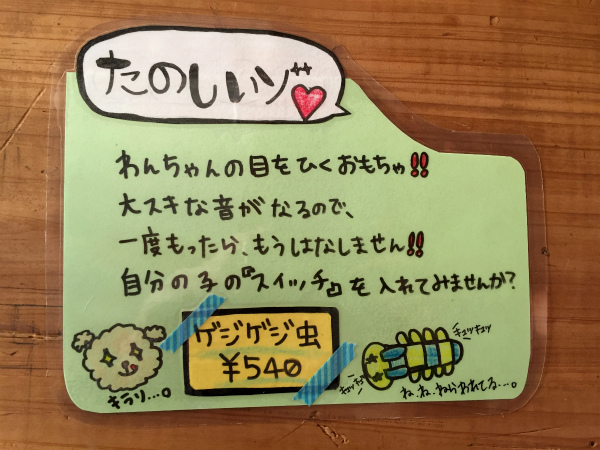 たのしいゾ
わんちゃんの目をひくおもちゃ!!
大スキな音がなるので、
一度もったら、もうはなしません!!
自分の子の『スイッチ』を入れてみませんか?
ゲジゲジ虫
¥540
キラリ…。
キュッキュッ
キュッキュッ
ね、ね、ねらわれてる…。